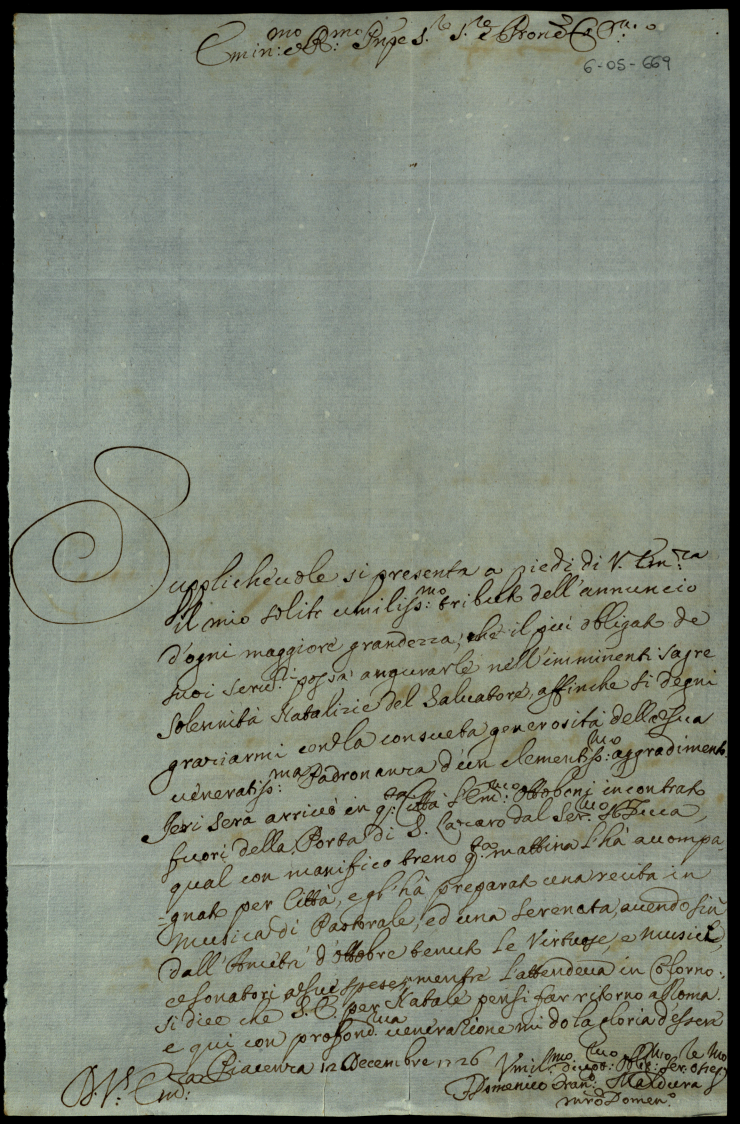 Emin:mo e Rmo: Prnpe
6-05-669
Supplichevole si presenta a piedi di V. Em:za
il mio solito umiliss:mo tributo dell'annuncio
d'ogni maggiore grandezza, che il più obligato de
suoi servi possa augurarle nell'imminenti sagre
solennità Natalizie del Salvatore, affinche si degni
graziarmi con la consueta generosità della sua
veneratiss:ma Padronanza d'un clementiss:mo aggradimento
Jeri sera arrivò in q:ta Città l'Em:mo Ottoboni incontrato
fuori della Porta di S. Lazaro dal Ser:mo
qual con manifico treno q:ta mattina l'hà accompa,
-gnato per Città, e gl'hà preparato una recita in
Musica di Pastorale, ed una Serenata, avendo sin
dall' d'ottobre tenuto le Virtuose, e Musici,
e sonatori a sue spese mentre l'attendeva in Colorno:
si dice che S. E. per Natale pensi far ritorno a Roma.
e qui con profond:ma venerazione mi do la gloria d'essere
D. V:s Em:za Piacenza 12 Decembre 1726 Umil:mo divot:mo
Domenico Maldura